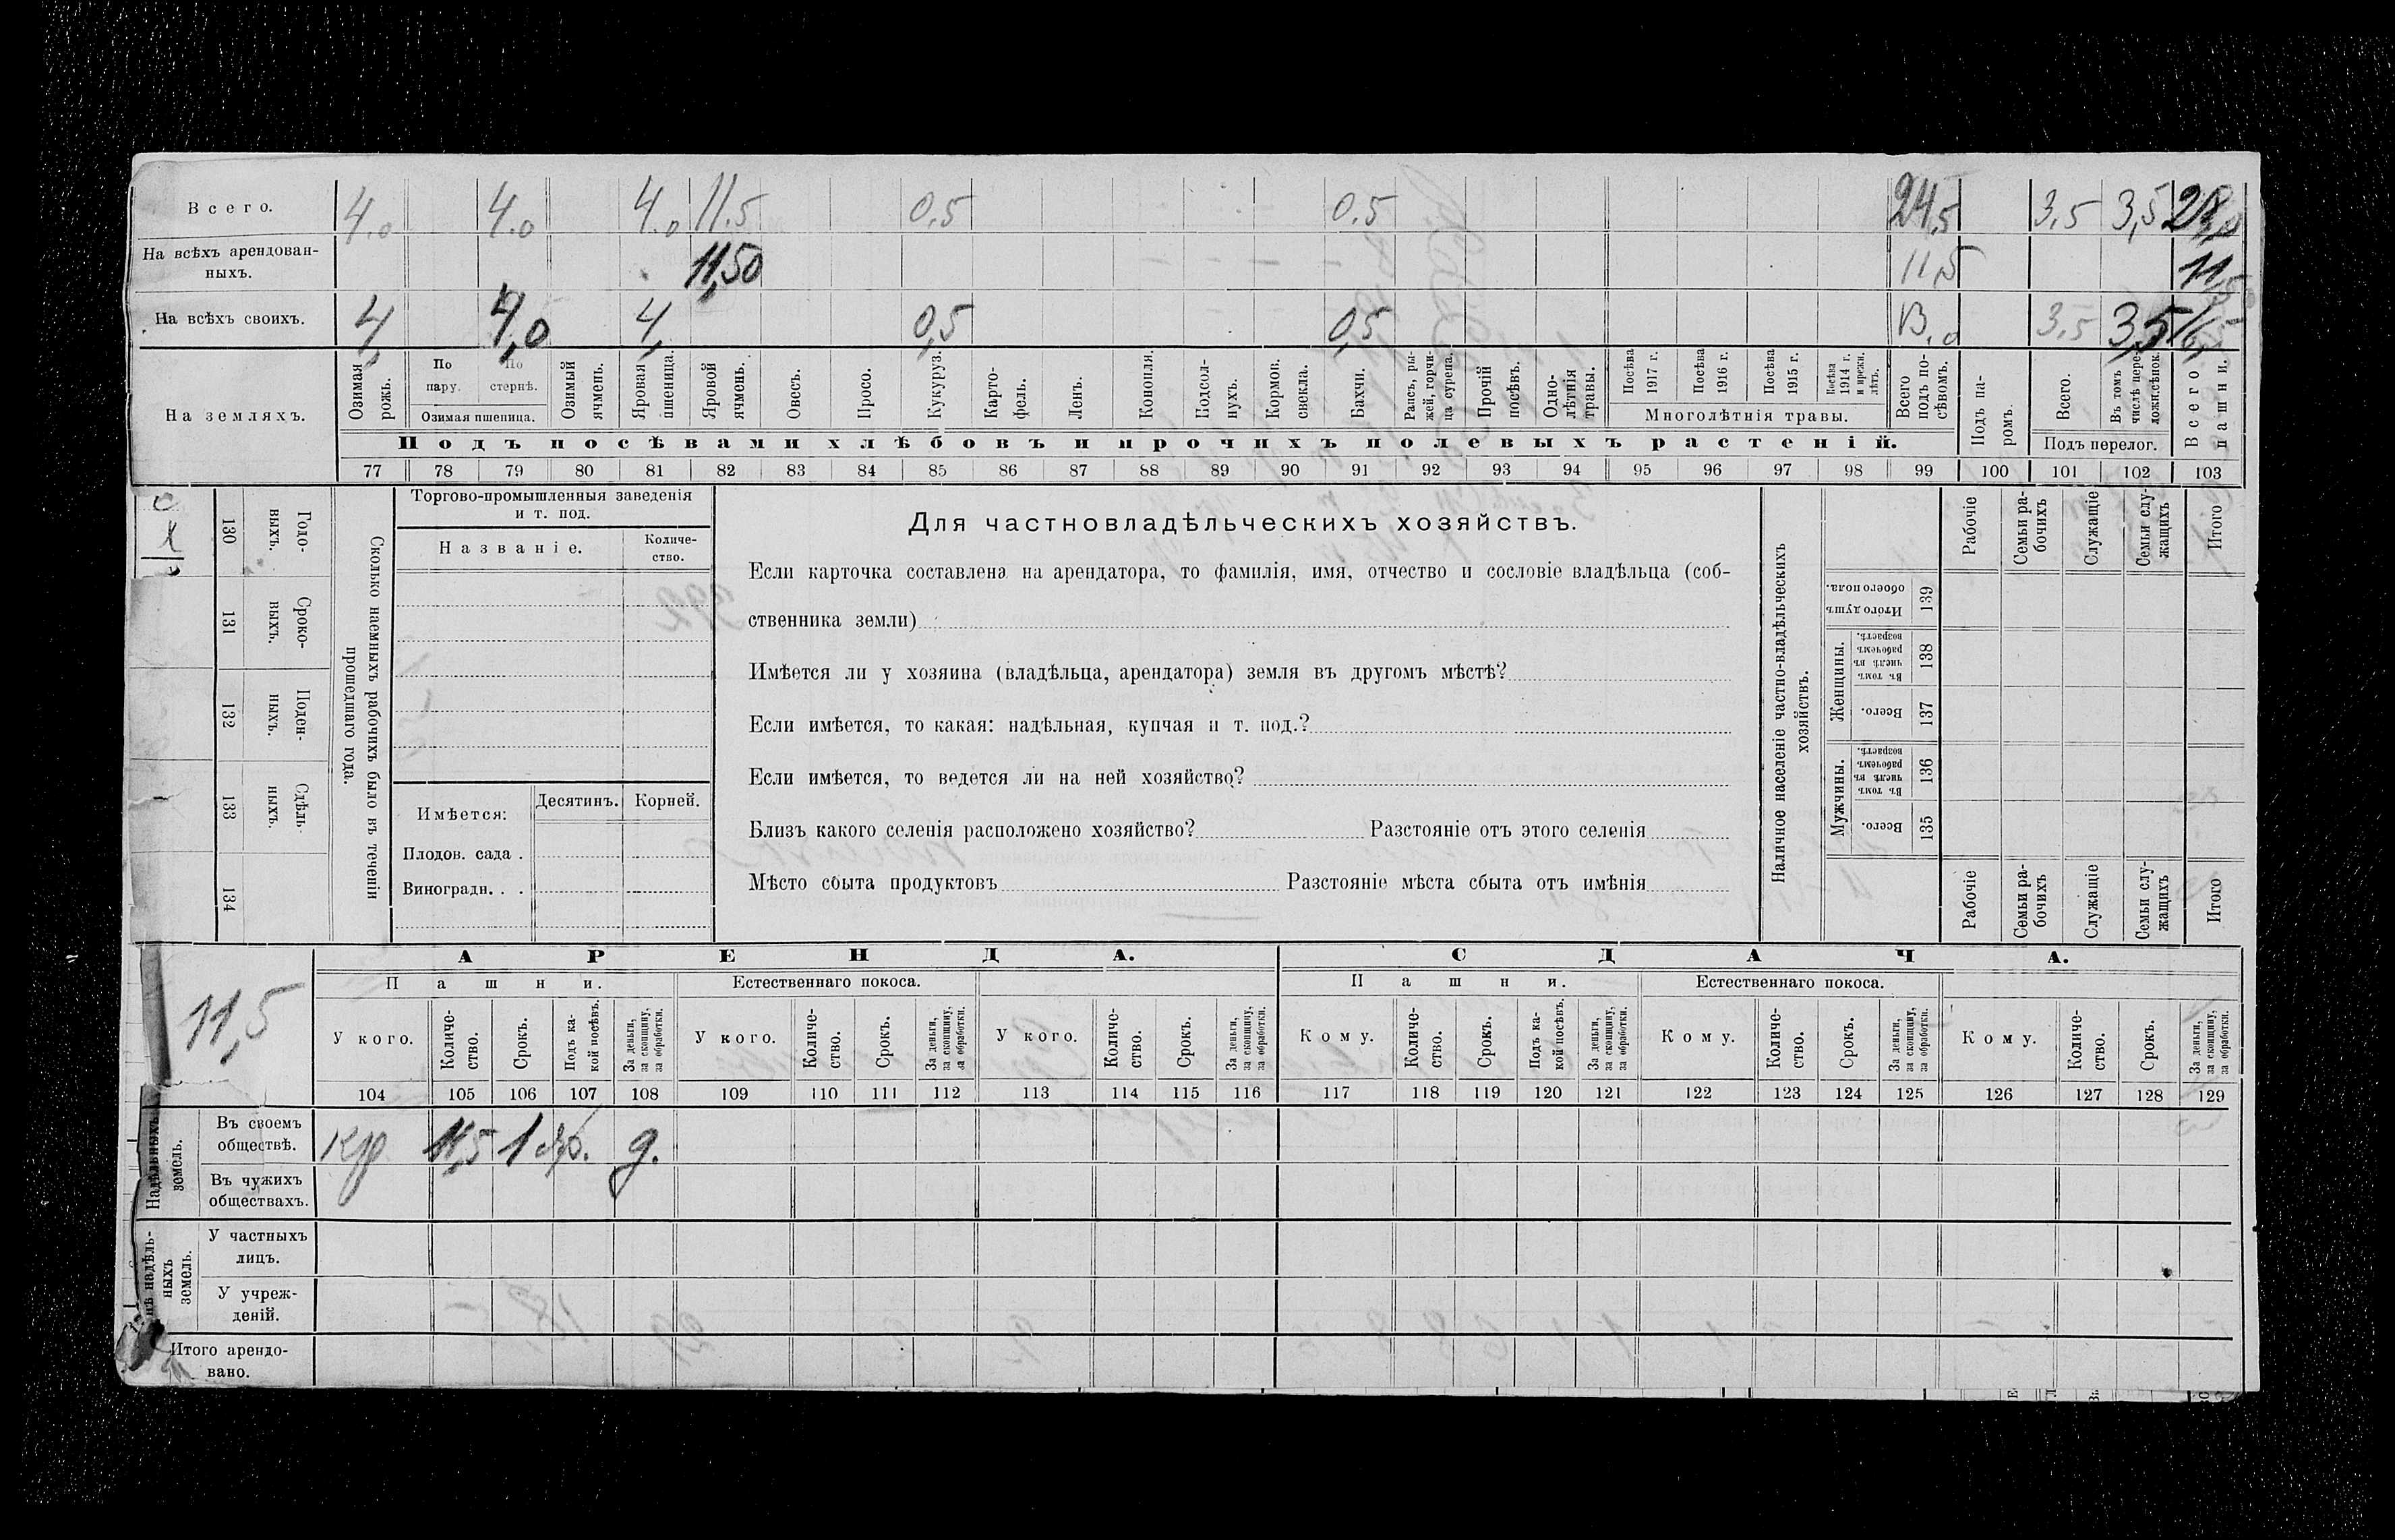 Всего. 4.0 4.0 4.0 11.5 0.5 0.5 24,5 3,5 3,5 28,0
На всѣхъ арендован-
ныхъ. 11,50 11,5 11,50
На всѣхъ своихъ. 4, 4,0 4, 0,5 0,5 13.0 3,5 3,5 16,5
На земляхъ.
Озимая рожь.
По пару.
По стернѣ.
Озимая пшеница.
Озимый ячмень.
Яровая пшеница.
Яровой ячмень.
Овесъ.
Просо.
Кукуруз.
Карто-
фель.
Ленъ.
Конопля.
Подсол-
нухъ.
Кормов.
свекла.
Бахчи.
Рапсъ, ры-
жей, горчи-
ца сурепа.
Прочій посѣвъ.
Одно-
лѣтнія
травы.
Посѣва 1917 г.
Посѣва 1916 г.
Посѣва 1915 г.
Посѣва 1914 г. и прежн. лѣтъ.
Многолѣтнія травы.
Всего подъ по-
сѣвомъ.
Подъ па-
ромъ.
Всего.
Въ томъ числѣ пере-
ложн.сѣнок.
Подъ перелог.
Всего пашни.
Подъ посѣвами хлѣбовъ и прочихъ полевыхъ растеній.
77 78 79 80 81 82 83 84 85 86 87 88 89 90 91 92 93 94 95 96 97 98 99 100 101 102 103
130 Годо-
ныхъ.
131 Сроко-
ныхъ.
132 Поден-
ныхъ.
133 Сдѣль.
ныхъ.
134
Сколько наемныхъ рабочихъ было въ теченіи
прошедшаго года.
Торгово-промышленныя заведенія
и т. под.
Названіе. Количе-
ство.
Имѣется: Десятинъ. Корней.
Плодов. сада .
Виноградн. . .
Для частновладѣльческихъ хозяйствъ.
Если карточка составлена на арендатора, то фамилія, имя, отчество и сословіе владѣльца (соб-
ственника земли)
Имѣется ли у хозяина (владѣльца, арендатора) земля въ другомъ мѣстѣ?
Если имѣется, то какая: надѣльная, купчая и т. под.?
Если имѣется, то ведется ли на ней хозяйство?
Близъ какого селенія расположено хозяйство? Разстояніе отъ этого селенія
Мѣсто сбыта продуктовъ Разстояніе мѣста сбыта отъ имѣнія
Наличное населеніе частно-владѣльческихъ
хозяйствъ.
Рабочіе
Семьи ра-
бочихъ
Служащіе
Семьи слу-
жащихъ
Итого
Итого душъ
обоего пола.
139
Женщины.
Въ томъ числѣ въ рабочемъ возрастѣ.
138
Всего.
137
Мужчины.
Въ томъ числѣ въ рабочемъ возрастѣ.
136
Всего.
135
Рабочіе
Семьи ра-
бочихъ
Служащіе
Семьи слу-
жащихъ
Итого
11,5
АРЕНДА. СДАЧА.
Пашни. Естественнаго покоса. Пашни. Естественнаго покоса.
У кого. Количе-
ство. Срокъ. Подъ ка-
кой посѣвъ. За деньги,
за скопщину,
за обработки.
У кого. Количе-
ство. Срокъ. За деньги,
за скопщину,
за обработки.
У кого. Количе-
ство. Срокъ. За деньги,
за скопщину,
за обработки.
Кому. Количе-
ство. Срокъ. Подъ ка-
кой посѣвъ. За деньги,
за скопщину,
за обработки.
Кому. Количе-
ство. Срокъ. За деньги,
за скопщину,
за обработки.
Кому. Количе-
ство. Срокъ. За деньги,
за скопщину,
за обработки.
104 105 106 107 108 109 110 111 112 113 114 115 116 117 118 119 120 121 122 123 124 125 126 127 128 129
Надѣльныхъ
земель.
Въ своемъ
обществѣ. Кр 11,5 1 д.
Въ чужихъ
обществахъ.
нѣ надѣль-
ныхъ
земель.
У частныхъ
лицъ.
У учреж-
деній.
Итого арендо-
вано.